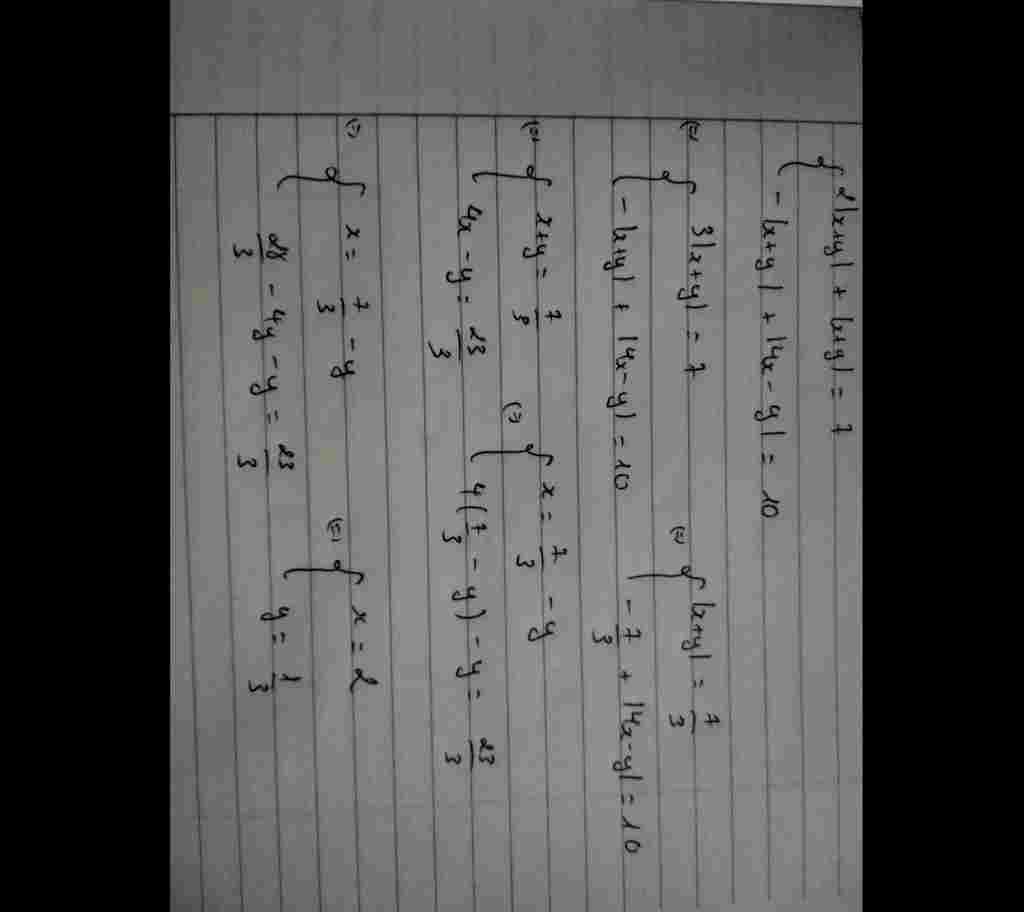 { 2|x+y| + |x+y| = 7
- |x+y| + |4x-y| = 10
(=) { 3|x+y| = 7
- |x+y| + |4x-y| = 10
(=) { |x+y| = 7/3
- 7/3 + |4x-y| = 10
(=) { x+y = 7/3
4x - y = 23/3
(=) { x = 7/3 - y
4(7/3 - y) - y = 23/3
(=) { x = 7/3 - y
28/3 - 4y - y = 23/3
(=) { x = 2
y = 1/3